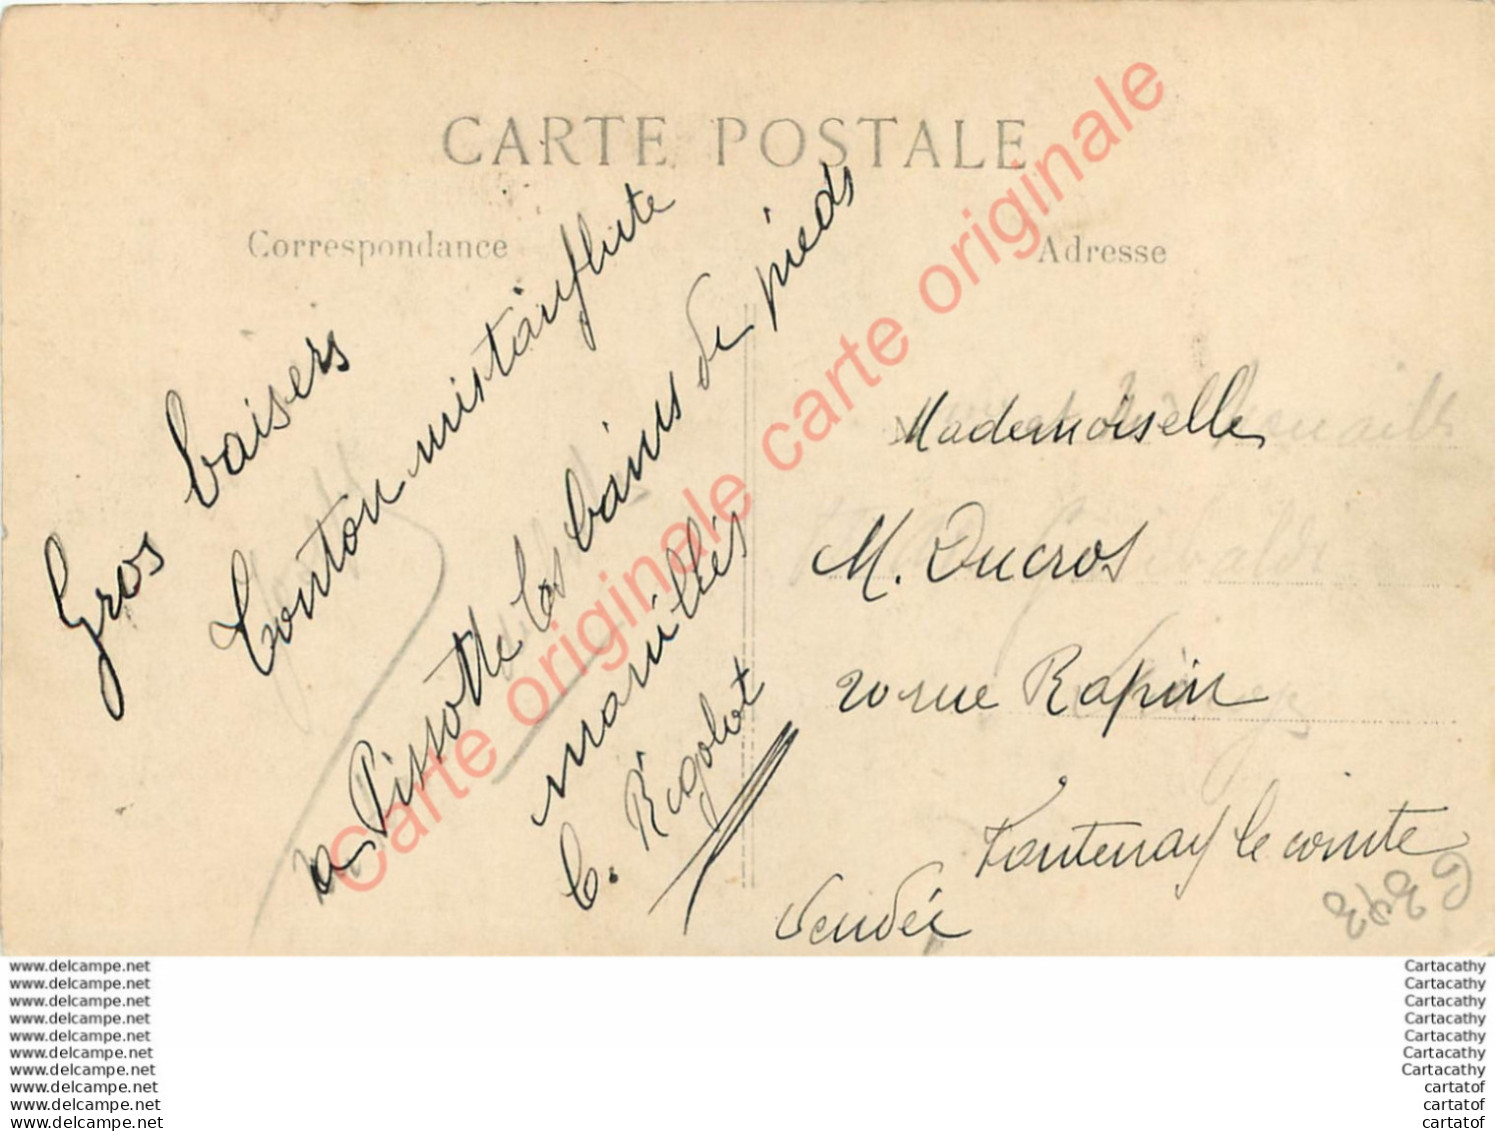 CARTE POSTALE
Correspondance
Adresse
Gros baisers
Tonton mistanflute
a Pissotte les bains de pieds
mouillés
C. Rigolot
Mademoiselle
M. Ducros
20 rue Rapin
Fontenay le comte
Vendée
Carte originale carte originale
www.delcampe.net
www.delcampe.net
www.delcampe.net
www.delcampe.net
www.delcampe.net
www.delcampe.net
www.delcampe.net
www.delcampe.net
www.delcampe.net
www.delcampe.net
Cartacathy
Cartacathy
Cartacathy
Cartacathy
Cartacathy
Cartacathy
Cartacathy
cartatof
cartatof
cartatof